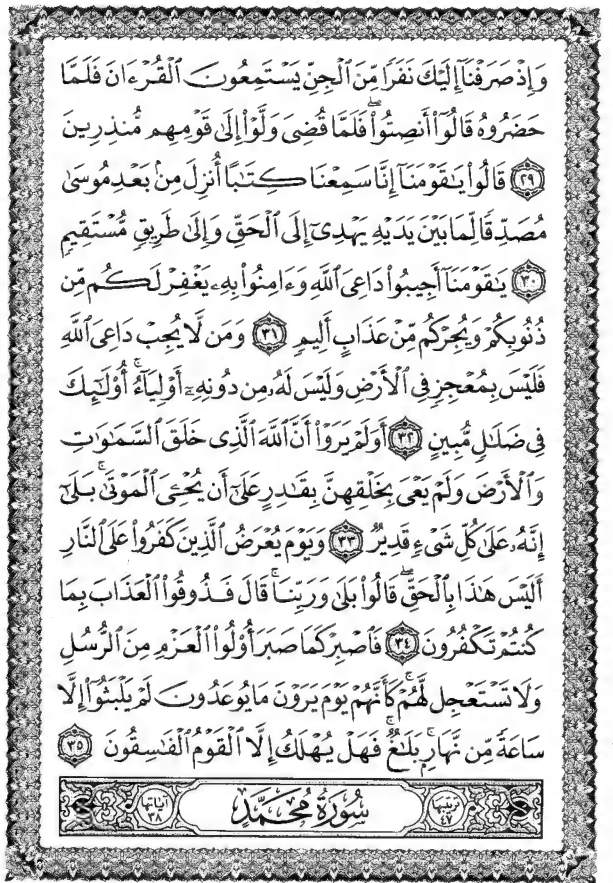 وَإِذْ صَرَفْنَآ إِلَيْكَ نَفَرًا مِّنَ ٱلْجِنِّ يَسْتَمِعُونَ ٱلْقُرْءَانَ فَلَمَّا
حَضَرُوهُ قَالُوٓا۟ أَنصِتُوا۟ۖ فَلَمَّا قُضِىَ وَلَّوْا۟ إِلَىٰ قَوْمِهِم مُّنذِرِينَ
٢٩ قَالُوا۟ يَـٰقَوْمَنَآ إِنَّا سَمِعْنَا كِتَـٰبًا أُنزِلَ مِنۢ بَعْدِ مُوسَىٰ
مُصَدِّقًا لِّمَا بَيْنَ يَدَيْهِ يَهْدِىٓ إِلَى ٱلْحَقِّ وَإِلَىٰ طَرِيقٍ مُّسْتَقِيمٍ
٣٠ يَـٰقَوْمَنَآ أَجِيبُوا۟ دَاعِىَ ٱللَّهِ وَءَامِنُوا۟ بِهِۦ يَغْفِرْ لَكُم مِّن
ذُنُوبِكُمْ وَيُجِرْكُم مِّنْ عَذَابٍ أَلِيمٍ ٣١ وَمَن لَّا يُجِبْ دَاعِىَ ٱللَّهِ
فَلَيْسَ بِمُعْجِزٍ فِى ٱلْأَرْضِ وَلَيْسَ لَهُۥ مِن دُونِهِۦٓ أَوْلِيَآءُۚ أُو۟لَـٰٓئِكَ
فِى ضَلَـٰلٍ مُّبِينٍ ٣٢ أَوَلَمْ يَرَوْا۟ أَنَّ ٱللَّهَ ٱلَّذِى خَلَقَ ٱلسَّمَـٰوَٰتِ
وَٱلْأَرْضَ وَلَمْ يَعْىَ بِخَلْقِهِنَّ بِقَـٰدِرٍ عَلَىٰٓ أَن يُحْـِۧىَ ٱلْمَوْتَىٰۚ بَلَىٰٓ
إِنَّهُۥ عَلَىٰ كُلِّ شَىْءٍ قَدِيرٌ ٣٣ وَيَوْمَ يُعْرَضُ ٱلَّذِينَ كَفَرُوا۟ عَلَى ٱلنَّارِ
أَلَيْسَ هَـٰذَا بِٱلْحَقِّۖ قَالُوا۟ بَلَىٰ وَرَبِّنَاۚ قَالَ فَذُوقُوا۟ ٱلْعَذَابَ بِمَا
كُنتُمْ تَكْفُرُونَ ٣٤ فَٱصْبِرْ كَمَا صَبَرَ أُو۟لُوا۟ ٱلْعَزْمِ مِنَ ٱلرُّسُلِ
وَلَا تَسْتَعْجِل لَّهُمْۚ كَأَنَّهُمْ يَوْمَ يَرَوْنَ مَا يُوعَدُونَ لَمْ يَلْبَثُوٓا۟ إِلَّا
سَاعَةً مِّن نَّهَارٍۭۚ بَلَـٰغٌۚ فَهَلْ يُهْلَكُ إِلَّا ٱلْقَوْمُ ٱلْفَـٰسِقُونَ ٣٥
ترتيبها ٤٧ سُورَةُ مُحَمَّدٍ آياتها ٣٨